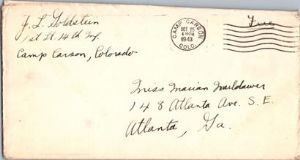 J. L. Goldstein
1st Lt 14th Inf
Camp Carson, Colorado
CAMP CARSON
COLO.
1943
Free
Miss Marian
148 Atlanta Ave. S.E.
Atlanta, Ga.